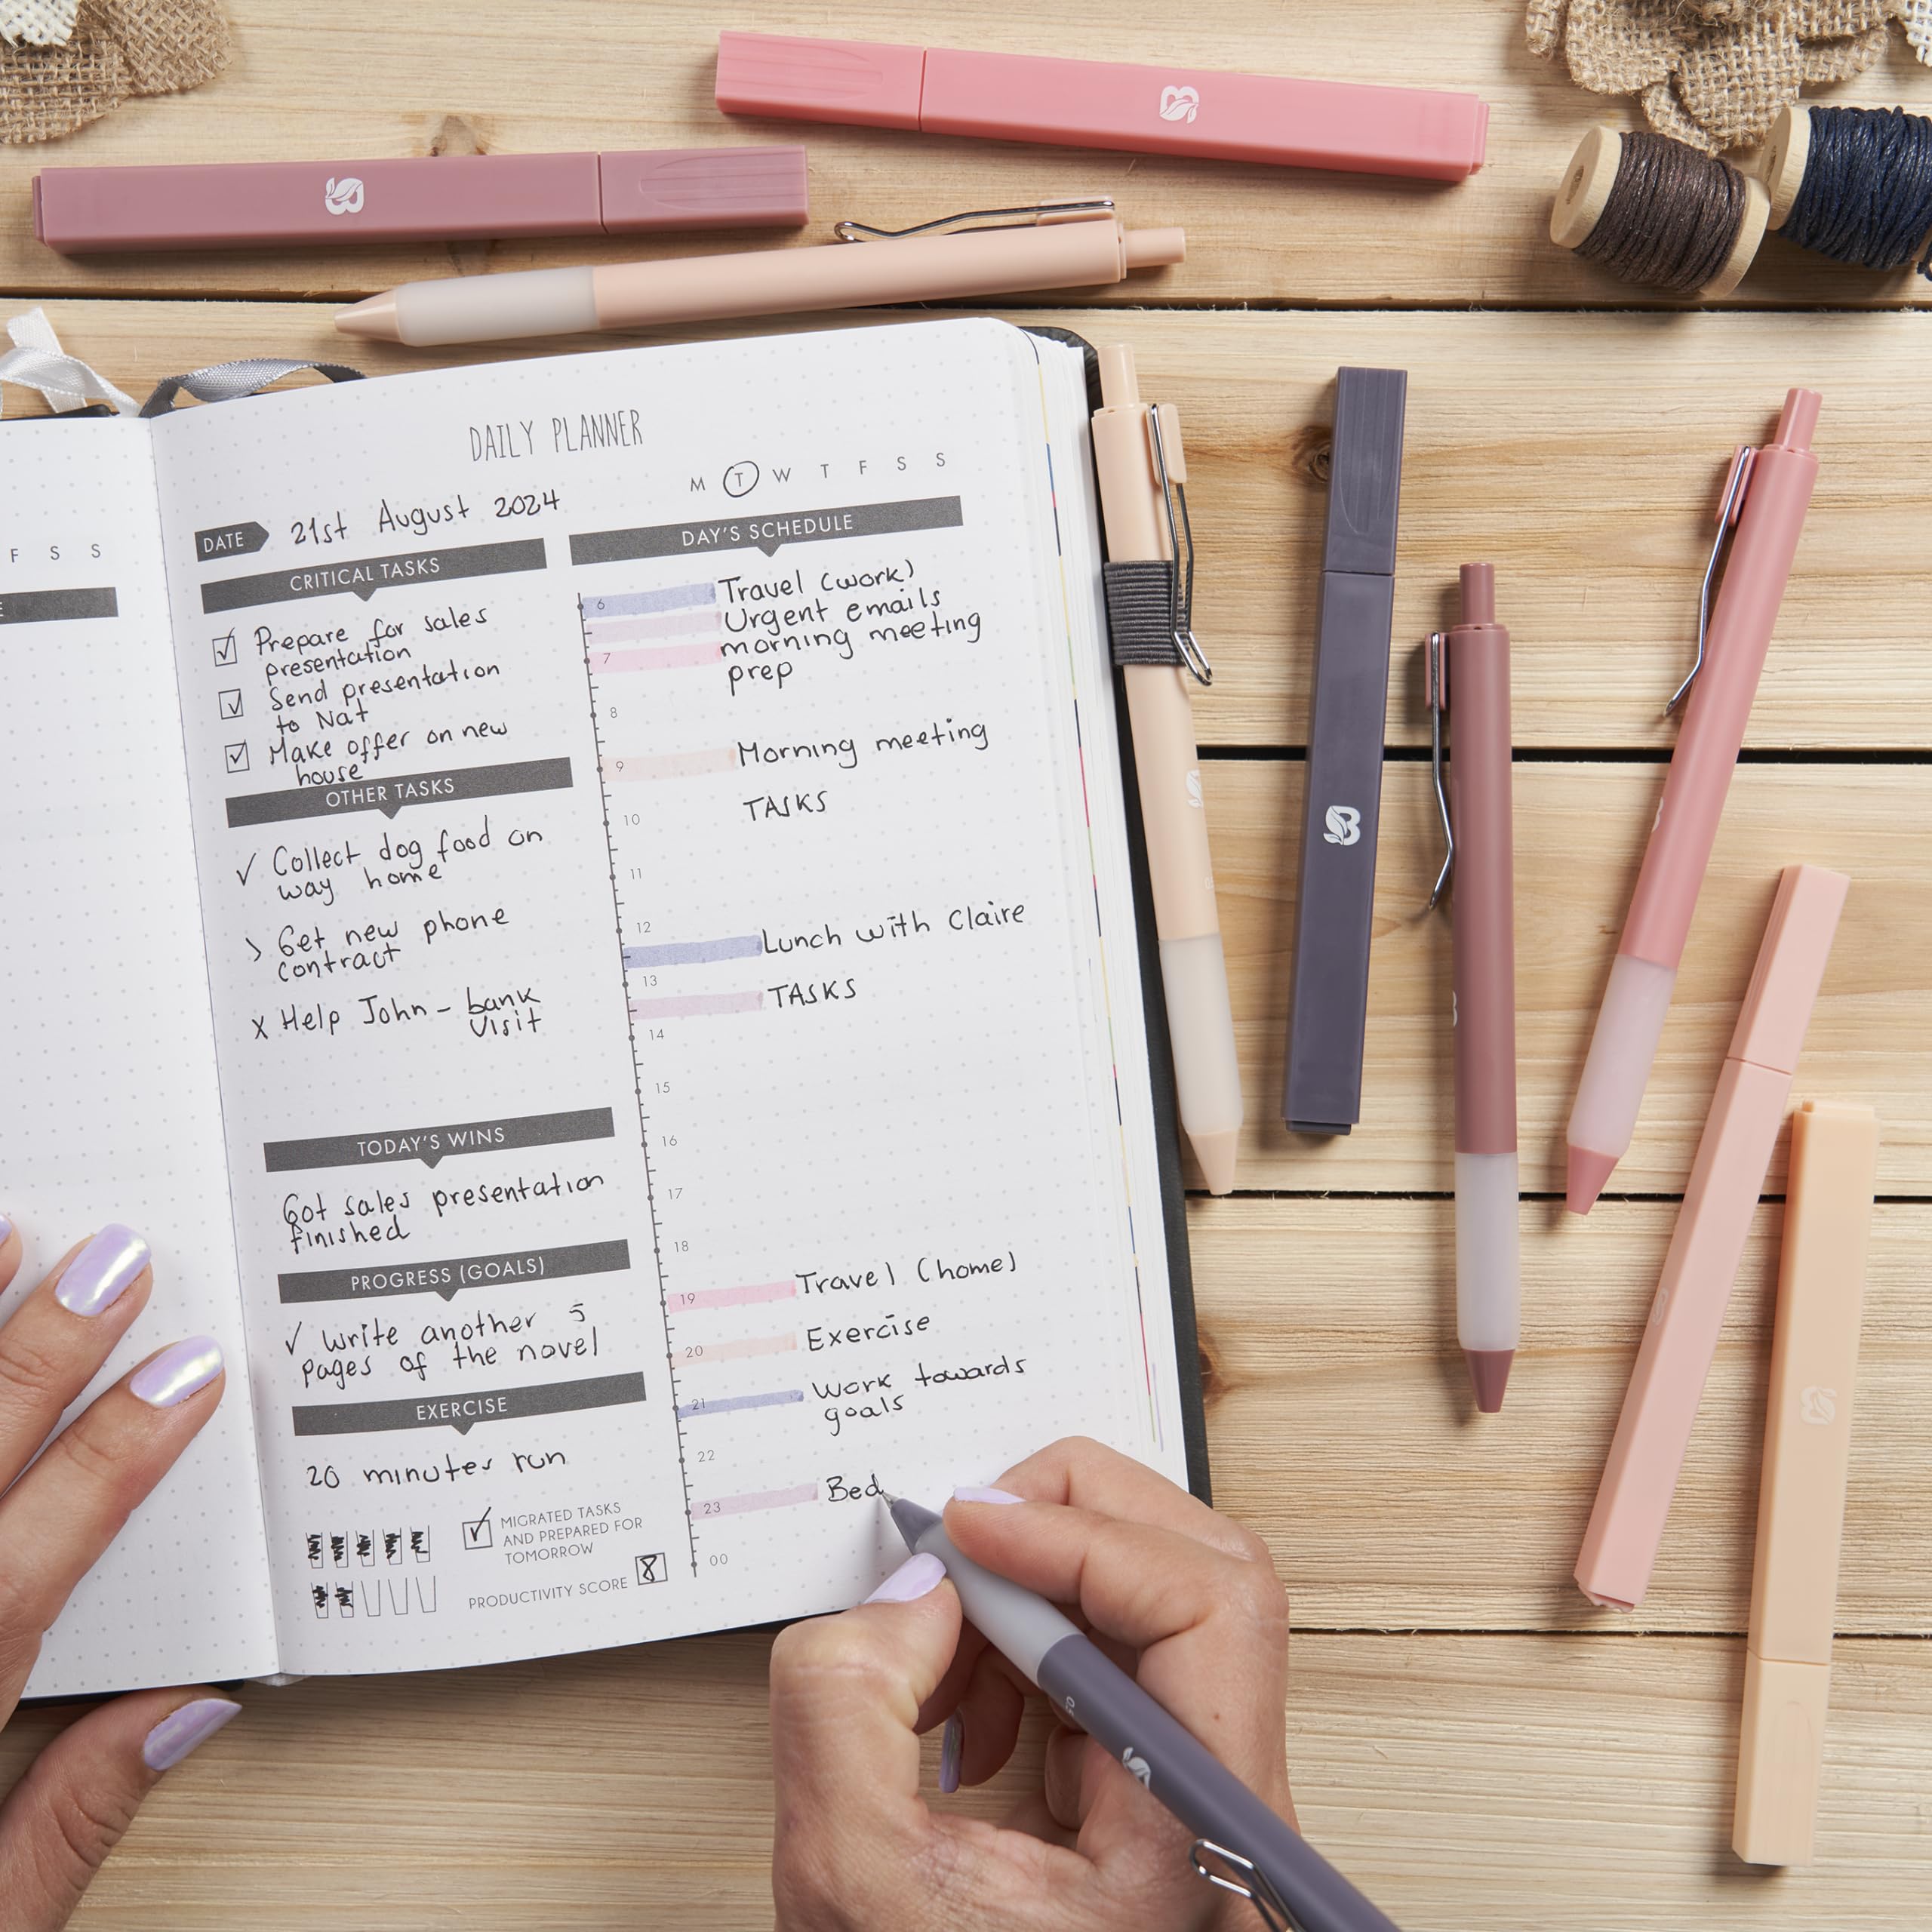 DAILY PLANNER
M T W T F S S
DATE 21st August 2024
F S S
CRITICAL TASKS
Prepare for sales
presentation
Send presentation
to Nat
Make offer on new
house
OTHER TASKS
✓ Collect dog food on
way home
> Get new phone
contract
x Help John - bank
visit
TODAY'S WINS
Got sales presentation
finished
PROGRESS (GOALS)
✓ Write another 5
pages of the novel
EXERCISE
20 minutes run
MIGRATED TASKS
AND PREPARED FOR
TOMORROW
PRODUCTIVITY SCORE 8
DAY'S SCHEDULE
6 Travel (work)
Urgent emails
7 morning meeting
prep
8
9 Morning meeting
10 TASKS
11
12
Lunch with Claire
13
TASKS
14
15
16
17
18
19 Travel (home)
20 Exercise
21 Work towards
goals
22
23 Bed
00